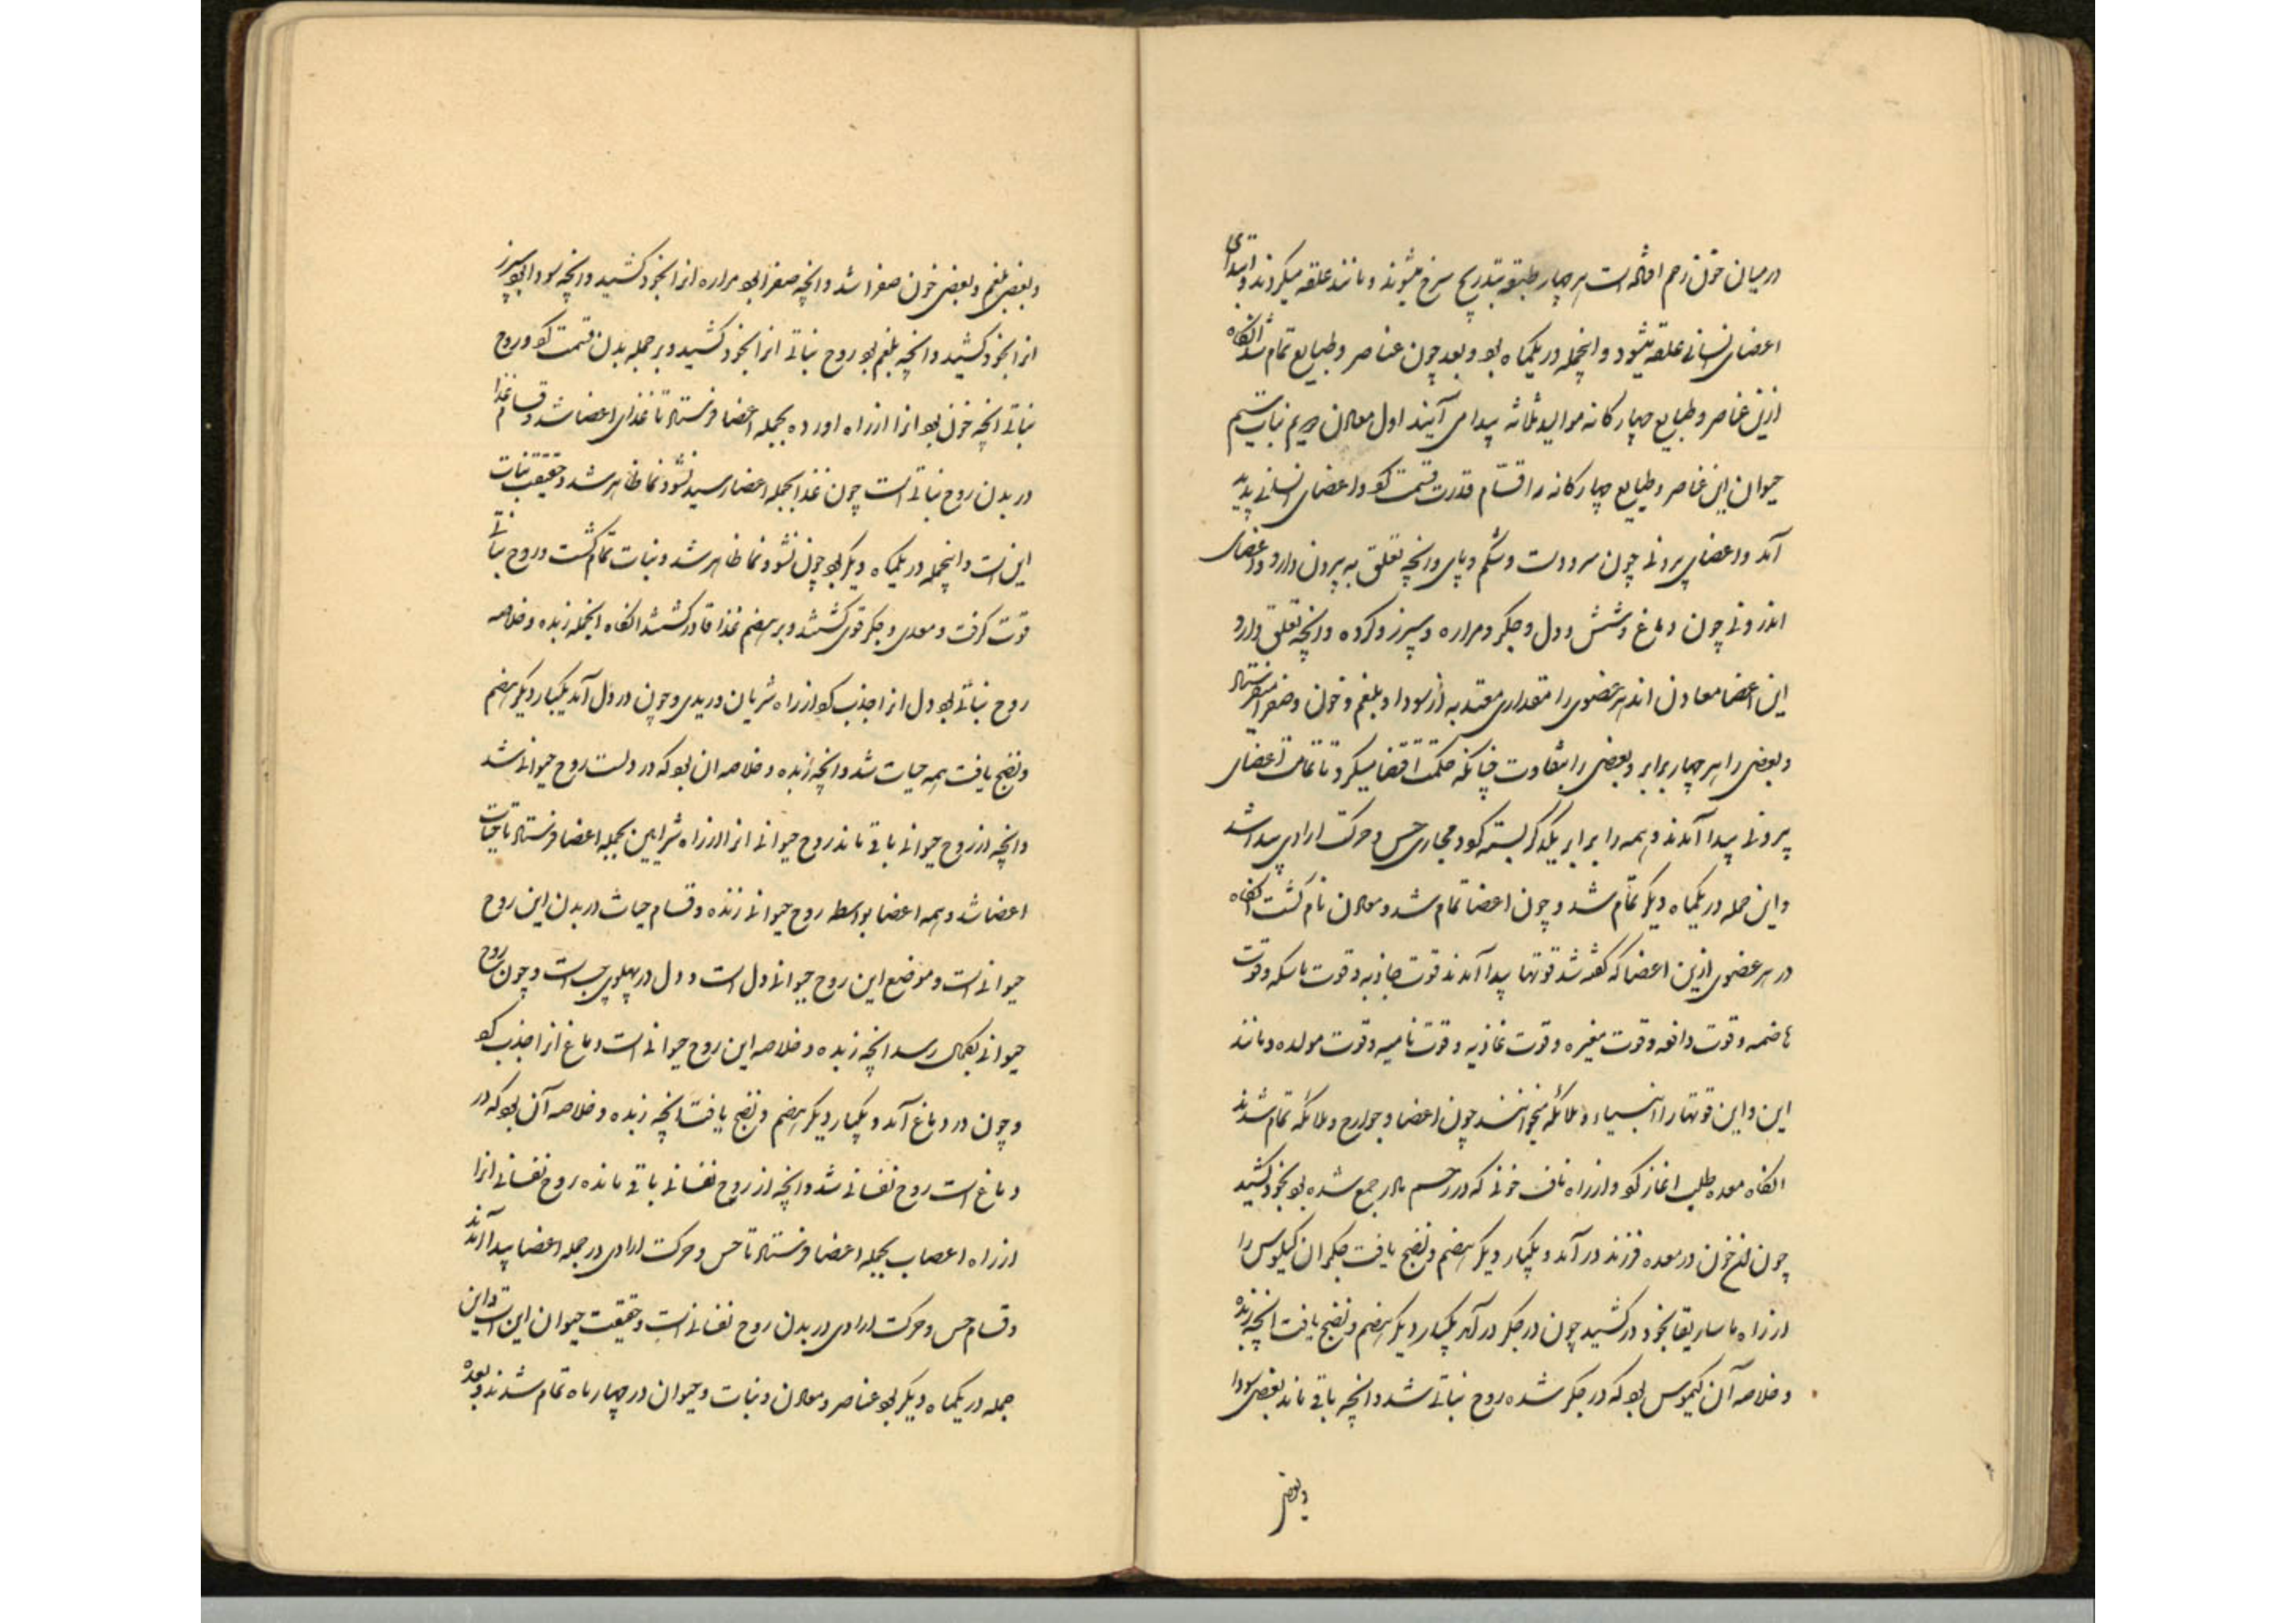 در میان خون رحم افتاده است هر چهار طبقه بتدریج سرخ میشوند و مانند علقه میگردند و ابتدای
اعضای انسانی علقه میشود و اینجمله در یکماه بود و بعد چون عناصر و طبایع تمام شد آنگاه
ازین عناصر و طبایع چهارگانه موالید ثلاثه پیدا می آیند اول معادن دویم نبات سیم
حیوان این عناصر و طبایع چهارگانه را قسّام قدرت قسمت کرد و اعضای انسانی پدید
آمد و اعضای بیرونی چون سر و دست و شکم و پای و انچه تعلق به بیرون دارد و اعضای
اندرونی چون دماغ و شش و دل و جگر و مراره و سپرز و گرده و انچه تعلق دارد
این اعضا معادن اند هر عضوی را مقداری معتد به از سودا و بلغم و خون و صفرا میفرستاد
و بعضی را هر چهار برابر و بعضی را بتفاوت چنانکه حکمت اقتضا میکرد تا تمامت اعضای
بیرونی پیدا آمدند و همه را برابر یکدگر بسته کرد و مجاری حس و حرکت ارادی پیدا شد
و این جمله در یکماه دیگر تمام شد و چون اعضا تمام شد و معادن نام گشت انگاه
در هر عضوی ازین اعضا که گفته شد قوتها پیدا آمدند قوت جاذبه و قوت ماسکه و قوت
هاضمه و قوت دافعه و قوت مغیره و قوت غاذیه و قوت نامیه و قوت مولده و مانند
این و این قوتها را انبیاء و ملائکه میخوانند چون اعضا و جوارح و ملائکه تمام شدند
انگاه معده طلب اغاز کرد و از راه ناف خونی که در رحم مادر جمع شده بود بخود کشید
چون ان خون در معده فرزند در آمد و یکبار دیگر هضم و نضج یافت جگر ان کیلوس را
از راه ماساریقا بخود در کشید چون در جگر در آمد یکبار دیگر هضم و نضج یافت انچه زبده
و خلاصه آن کیموس بود که در جگر شده روح نباتی شد و انچه باقی ماند بعضی سودا
و بعضی
و بعضی بلغم و بعضی خون صفرا شد و انچه صفرا بود مراره انرا بخود کشید و انچه سودا بود سپرز
انرا بخود کشید و انچه بلغم بود روح نباتی انرا بخود کشید و بر جمله بدن قسمت کرد و روح
نباتی انچه خون بود انرا از راه اورده بجمله اعضا فرستاد تا غذای اعضا شد و قسام غذا
در بدن روح نباتی است چون غذا بجمله اعضا رسید نشو و نما ظاهر شد و حقیقت نبات
این است و اینجمله در یکماه دیگر بود چون نشو و نما ظاهر شد و نبات تمام گشت و روح نباتی
قوت گرفت و معدی و جگر قوی گشتند و بر هضم غذا قادر گشتند انگاه انچه زبده و خلاصه
روح نباتی بود دل انرا جذب کرد از راه شریان وریدی و چون در دل آمد یکبار دیگر هضم
و نضج یافت همه حیات شد و انچه زبده و خلاصه ان بود که در دلست روح حیوانی شد
و انچه از روح حیوانی باقی ماند روح حیوانی انرا از راه شرایین بجمله اعضا فرستاد تا حیات
اعضا شد و همه اعضا بواسطه روح حیوانی زنده و قسام حیات در بدن این روح
حیوانی است و موضع این روح حیوانی دل است و دل در پهلوی چپ است و چون روح
حیوانی بکمال رسد انچه زبده و خلاصه این روح حیوانی است دماغ انرا جذب کرد
و چون در دماغ آمد و یکبار دیگر هضم و نضج یافت انچه زبده و خلاصه آن بود که در
دماغ است روح نفسانی شد و انچه از روح نفسانی باقی مانده روح نفسانی انرا
از راه اعصاب بجمله اعضا فرستاد تا حس و حرکت ارادی در جمله اعضا پیدا آمدند
و قسام حس و حرکت ارادی در بدن روح نفسانی است و حقیقت حیوان این است و این
جمله در یکماه دیگر بود عناصر و معادن و نبات و حیوان در چهار ماه تمام شدند و بعده